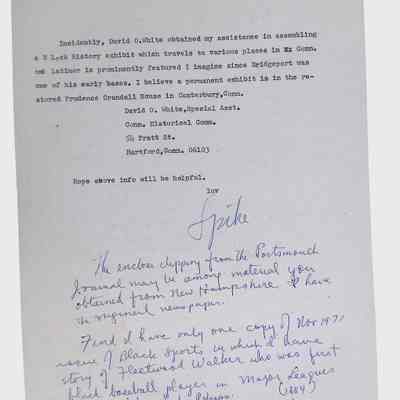 Incidently, David O.White obtained my assistance in assembling
a B lack History exhibit which travels to various places in Conn.
Latimer is prominently featured I imagine since Bridgeport was
one of his early bases. I believe a permanent exhibit is in the re-
stored Prudence Crandall House in Canterbury,Conn.
David O. White,Special Asst.
Conn. Historical Comm.
Pratt St.
Hartford,Conn. 06103
Hope above info will be helpful.
Spike
The enclose clipping from the Portsmouth
Journal may be among material you
obtained from New Hampshire. I have
the original newspaper.
Find I have only one copy of Nov 1971
issue of Black Sports in which I have
story of Fleetwood Walker who was first
black baseball player in Major Leagues
(1884)